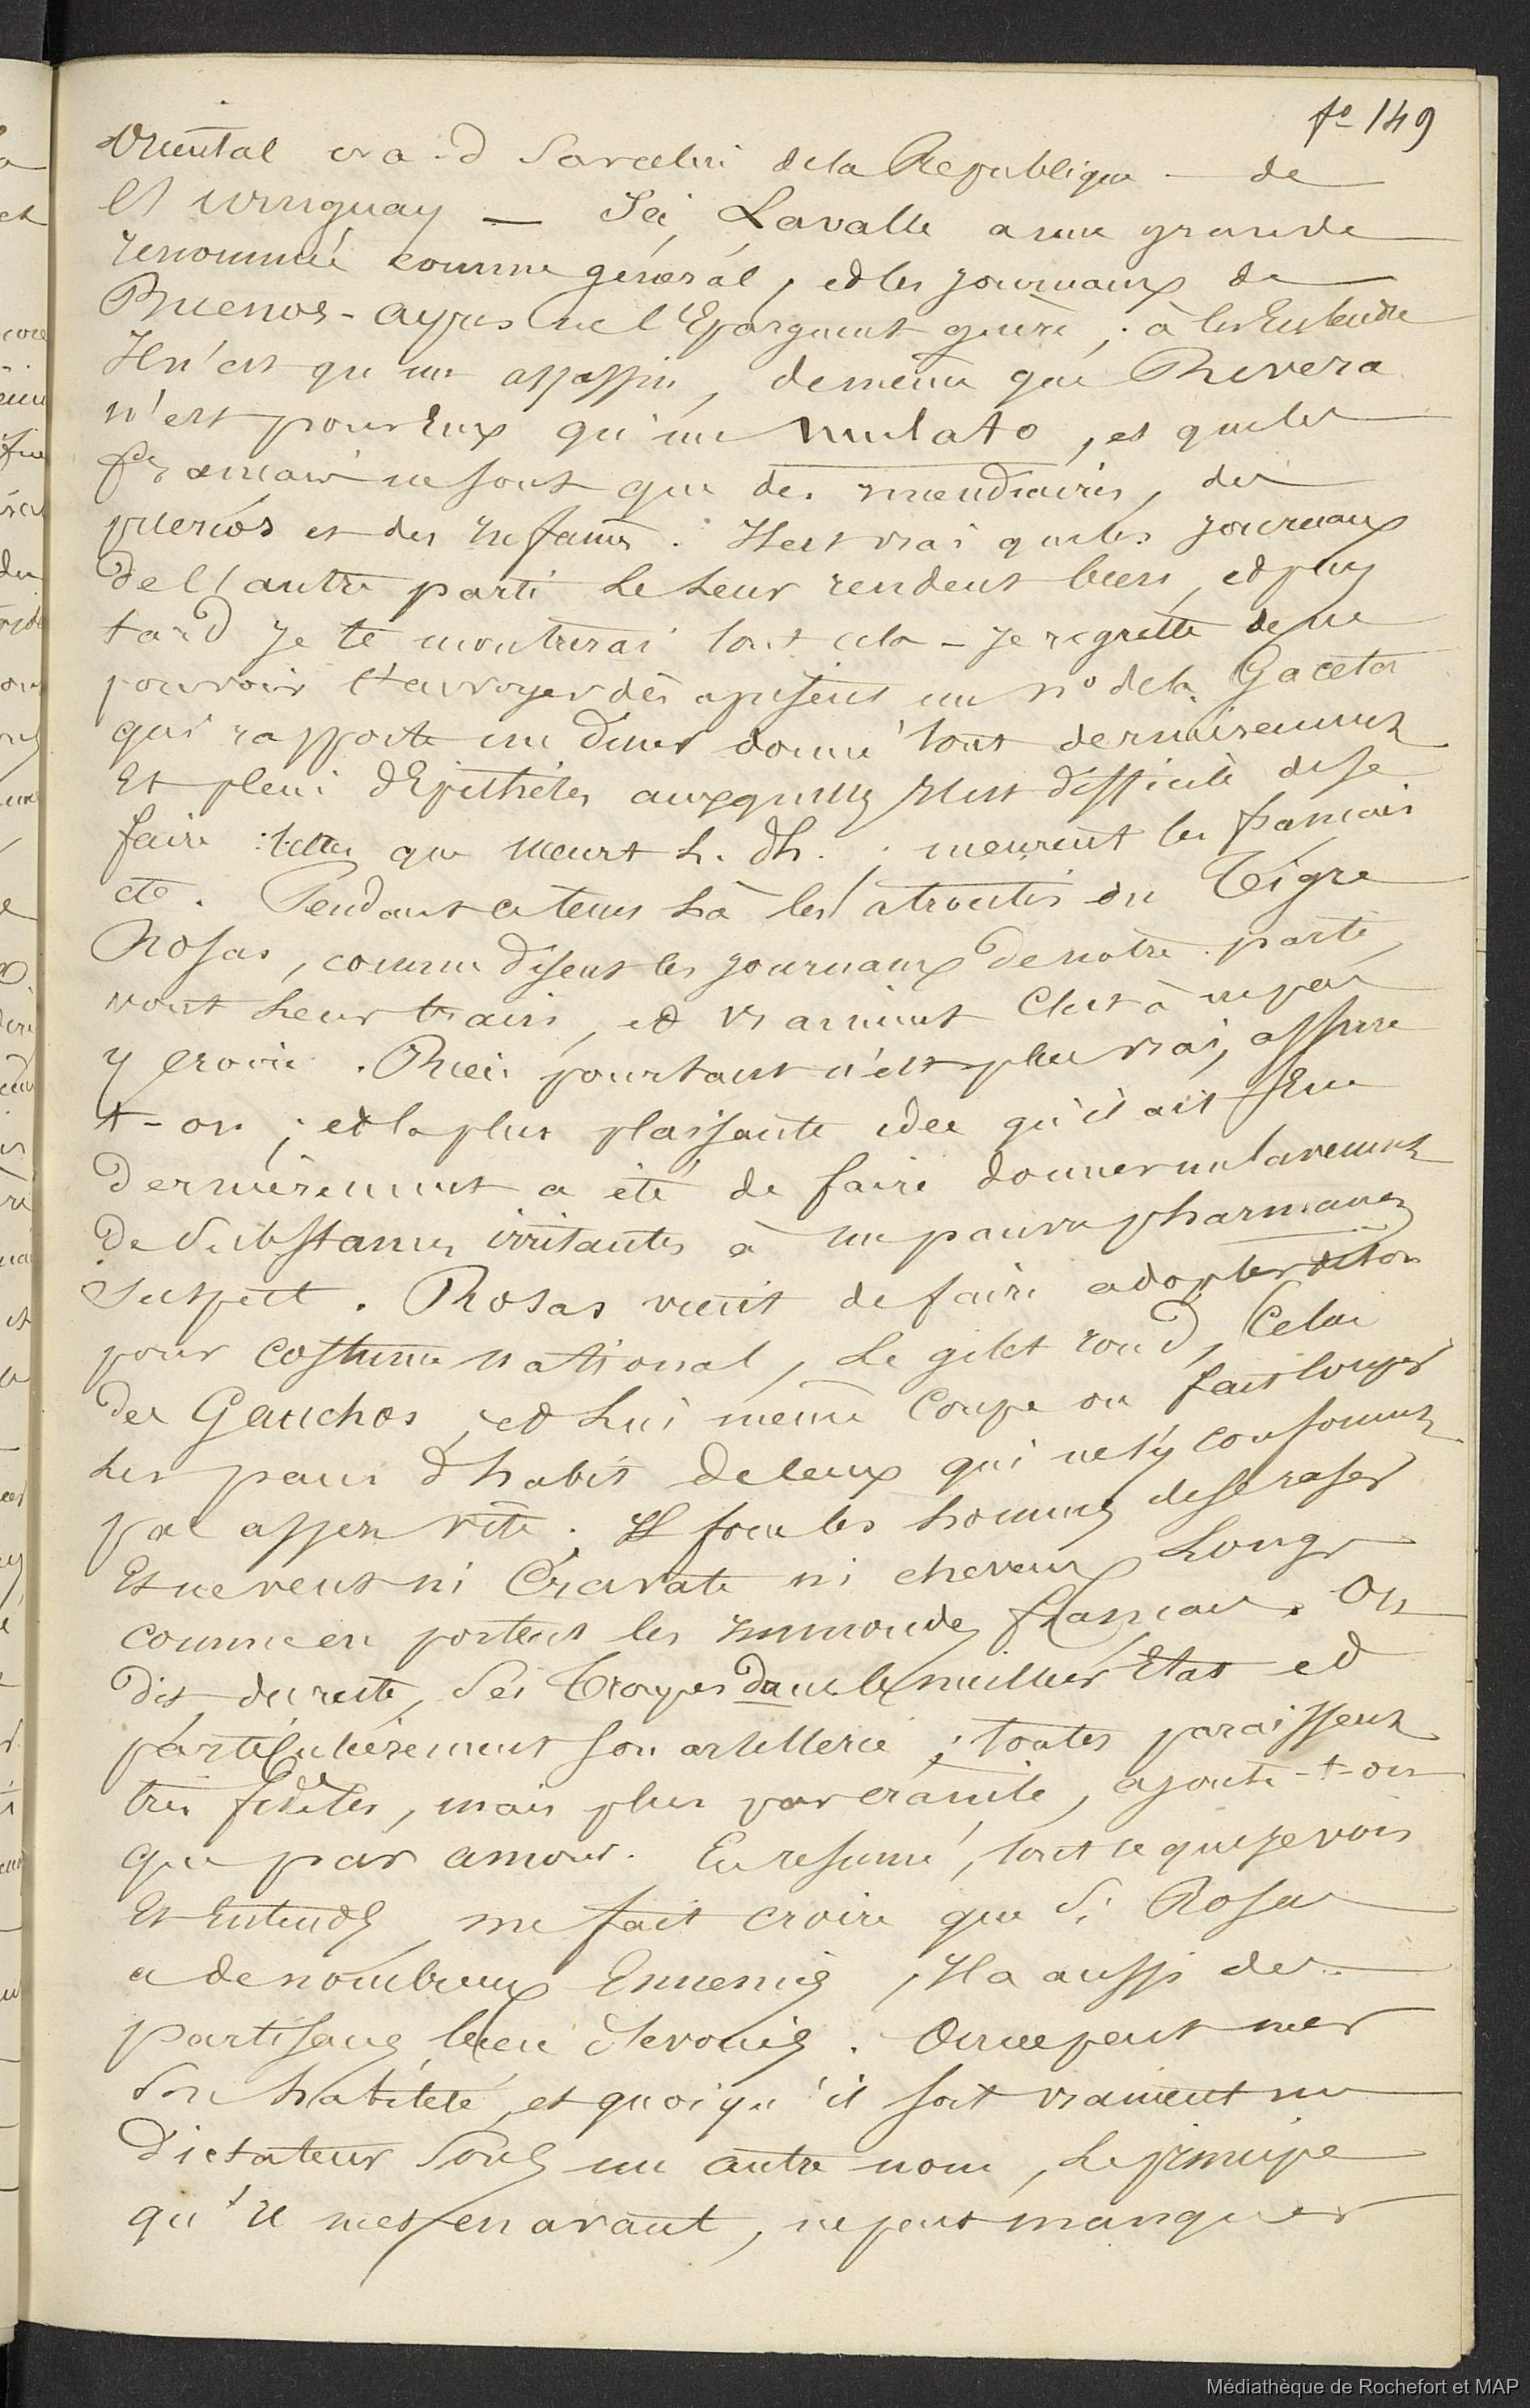 fo 149
Oriental c-a-d Sarcelui de la République de
l'Uruguay — Ici, Lavalle a une grande
renommée comme général, et les journaux de
Buenos-ayres ne l'Epargnent guère ; à les Entendre
Il n'est qu'un assassin, de même que Rivera
n'est pour Eux qu'un mulato, et que les
français ne sont que des incendiaires, des
puercos et des Infames. Il est vrai que les journaux
de l'autre parti le leur rendent bien, et plus
tard je te montrerai tout cela – je regrette de ne
pouvoir t'envoyer dès à présent un no de la Gaceta
qui rapporte un diner donné tout dernièrement
Et plein d'Epithètes auxquelles Il est difficile de se
faire : telles que meurt L. Ph. ; meurent les français
etc. Pendant ce tems là les atrocités du Tigre
Rosas, comme disent les journaux de notre parti,
vont leur train, et vraiment C'est à ne pas
y croire. Rien pourtant n'est plus vrai, assure
t-on ; et la plus plaisante idée qu'il ait Eue
dernièrement a été de faire donner un lavement
de substances irritantes à un pauvre pharmacien
suspect. Rosas vient de faire adopter dit-on
pour costume national, le gilet rond, Celui
des Gauchos, et lui même Coupe ou fait couper
les pans d'habit de ceux qui ne s'y conforment
pas assez vite. Il force les hommes de se raser
Et ne veut ni Cravate ni cheveux Longs
comme en portent les Immondes français. On
dit, du reste, Ses Troupes dans le meilleur Etat et
particulièrement son artillerie ; toutes paraissent
très fidèles, mais plus par crainte, ajoute-t-on
que par amour. En résumé, tout ce que je vois
Et Entends, me fait croire que Si Rosas
a de nombreux Ennemis, Il a aussi des
partisans bien dévoués. On ne peut nier
Son habileté, et quoiqu'il soit vraiment un
Dictateur Sous un autre nom, le principe
qu'il met en avant, ne peut manquer
Médiathèque de Rochefort et MAP